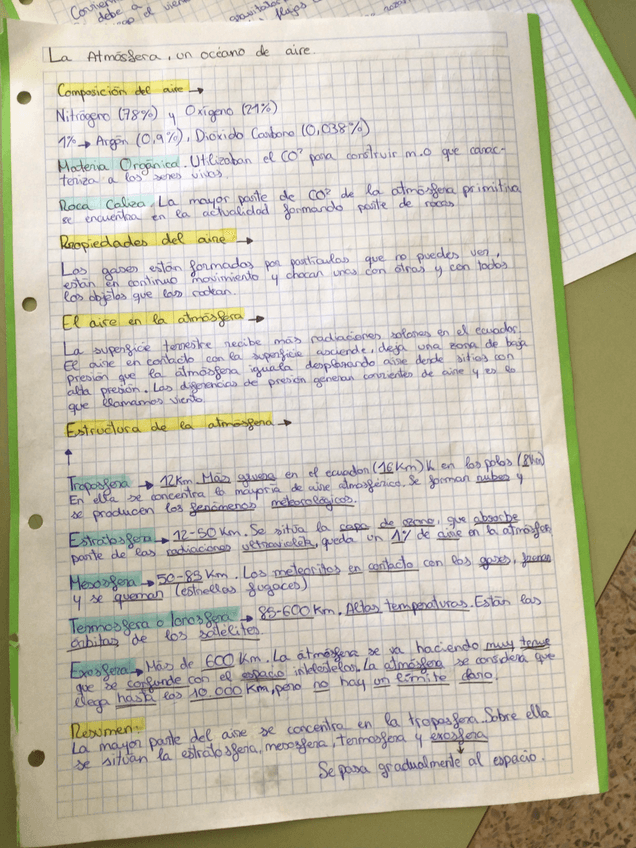 Corrient
debe a
el vien
flujos
La Atmósfera, un océano de aire.
Composición del aire →
Nitrógeno (78%) y Oxígeno (21%)
1% → Argón (0,9%), Dióxido Carbono (0,038%)
Materia Orgánica. Utilizaban el CO² para construir m.o que carac-
teriza a los seres vivos.
Roca Caliza. La mayor parte de CO² de la atmósfera primitiva
se encuentra en la actualidad formando parte de rocas
Propiedades del aire →
Los gases están formados por partículas que no puedes ver,
están en continuo movimiento y chocan unas con otras y con todos
los objetos que las rodean.
El aire en la atmósfera →
La superficie terrestre recibe más radiaciones solares en el ecuador.
El aire en contacto con la superficie asciende, deja una zona de baja
presión que la atmósfera iguala desplazando aire desde sitios con
alta presión. Las diferencias de presión generan corrientes de aire y es lo
que llamamos viento.
Estructura de la atmósfera →
↑
Troposfera → 12Km. Más gruesa en el ecuador (16Km) k en los polos (8Km)
En ella se concentra la mayoría de aire atmosférico. Se forman nubes y
se producen los fenómenos meteorológicos.
Estratosfera → 12-50 Km. Se sitúa la capa de ozono, que absorbe
parte de las radiaciones ultravioleta, queda un 1% de aire en la atmósfera
Mesosfera → 50-85 Km. Los meteoritos en contacto con los gases,
y se queman (estrellas fugaces)
Termosfera o Ionosfera → 85-600 Km. Altas temperaturas. Están las
órbitas de los satélites.
Exosfera → Más de 600 Km. La atmósfera se va haciendo muy tenue
que se confunde con el espacio La atmósfera se considera que
llega hasta los 10.000 Km, pero no hay un límite claro.
Resumen.
La mayor parte del aire se concentra en la troposfera. Sobre ella
se sitúan la estratosfera, mesosfera, termosfera y exosfera
↓
Se pasa gradualmente al espacio.